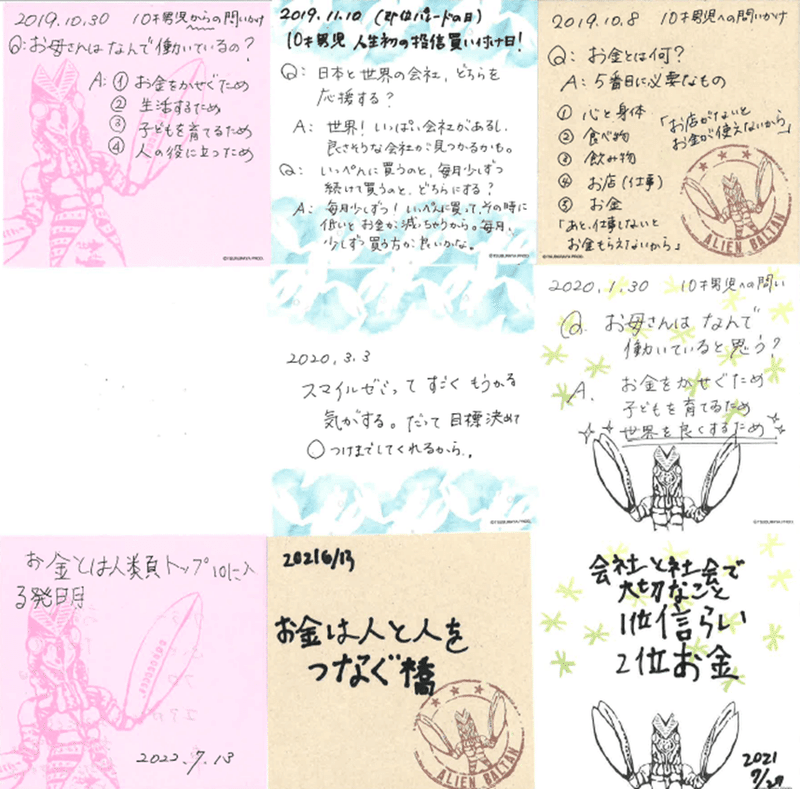 2019.10.30 10才男児からの問いかけ
Q:お母さんはなんで働いているの?
A:①お金をかせぐため
②生活するため
③子どもを育てるため
④人の役に立つため
©TSUBURAYA PROD.
2019.11.10 (即位パレードの日)
10才男児 人生初の投信買い付け日!
Q:日本と世界の会社、どちらを
応援する?
A:世界!いっぱい会社があるし、
良さそうな会社が見つかるかも。
Q:いっぺんに買うのと、毎月少しずつ
続けて買うのと、どちらにする?
A:毎月少しずつ!いっぺんに買って、その時に
低いとお金が減っちゃうから。毎月、
少しずつ買う方が良いかな。
©TSUBURAYA PROD.
2019.10.8 10才男児への問いかけ
Q:お金とは何?
A:5番目に必要なもの
①心と身体
②食べ物
③飲み物
④お店(仕事)
⑤お金
「お店がないと
お金が使えないから」
「あと、仕事しないと
お金もらえないから」
ALIEN BALTAN
©TSUBURAYA PROD.
2020.3.3
スマイルゼミって すごく もうかる
気がする。だって 目標決めて
〇つけまでしてくれるから。
©TSUBURAYA PROD.
2020.1.30 10才男児への問い
Q. お母さんは なんで
働いていると思う?
A. お金をかせぐため
子どもを育てるため
世界を良くするため
©TSUBURAYA PROD.
お金とは人類トップ10に入
る発明
2022.7.13
20216/13
お金は人と人を
つなぐ橋
ALIEN BALTAN
会社と社会で
大切なこと
1位信らい
2位お金
2021
7/27